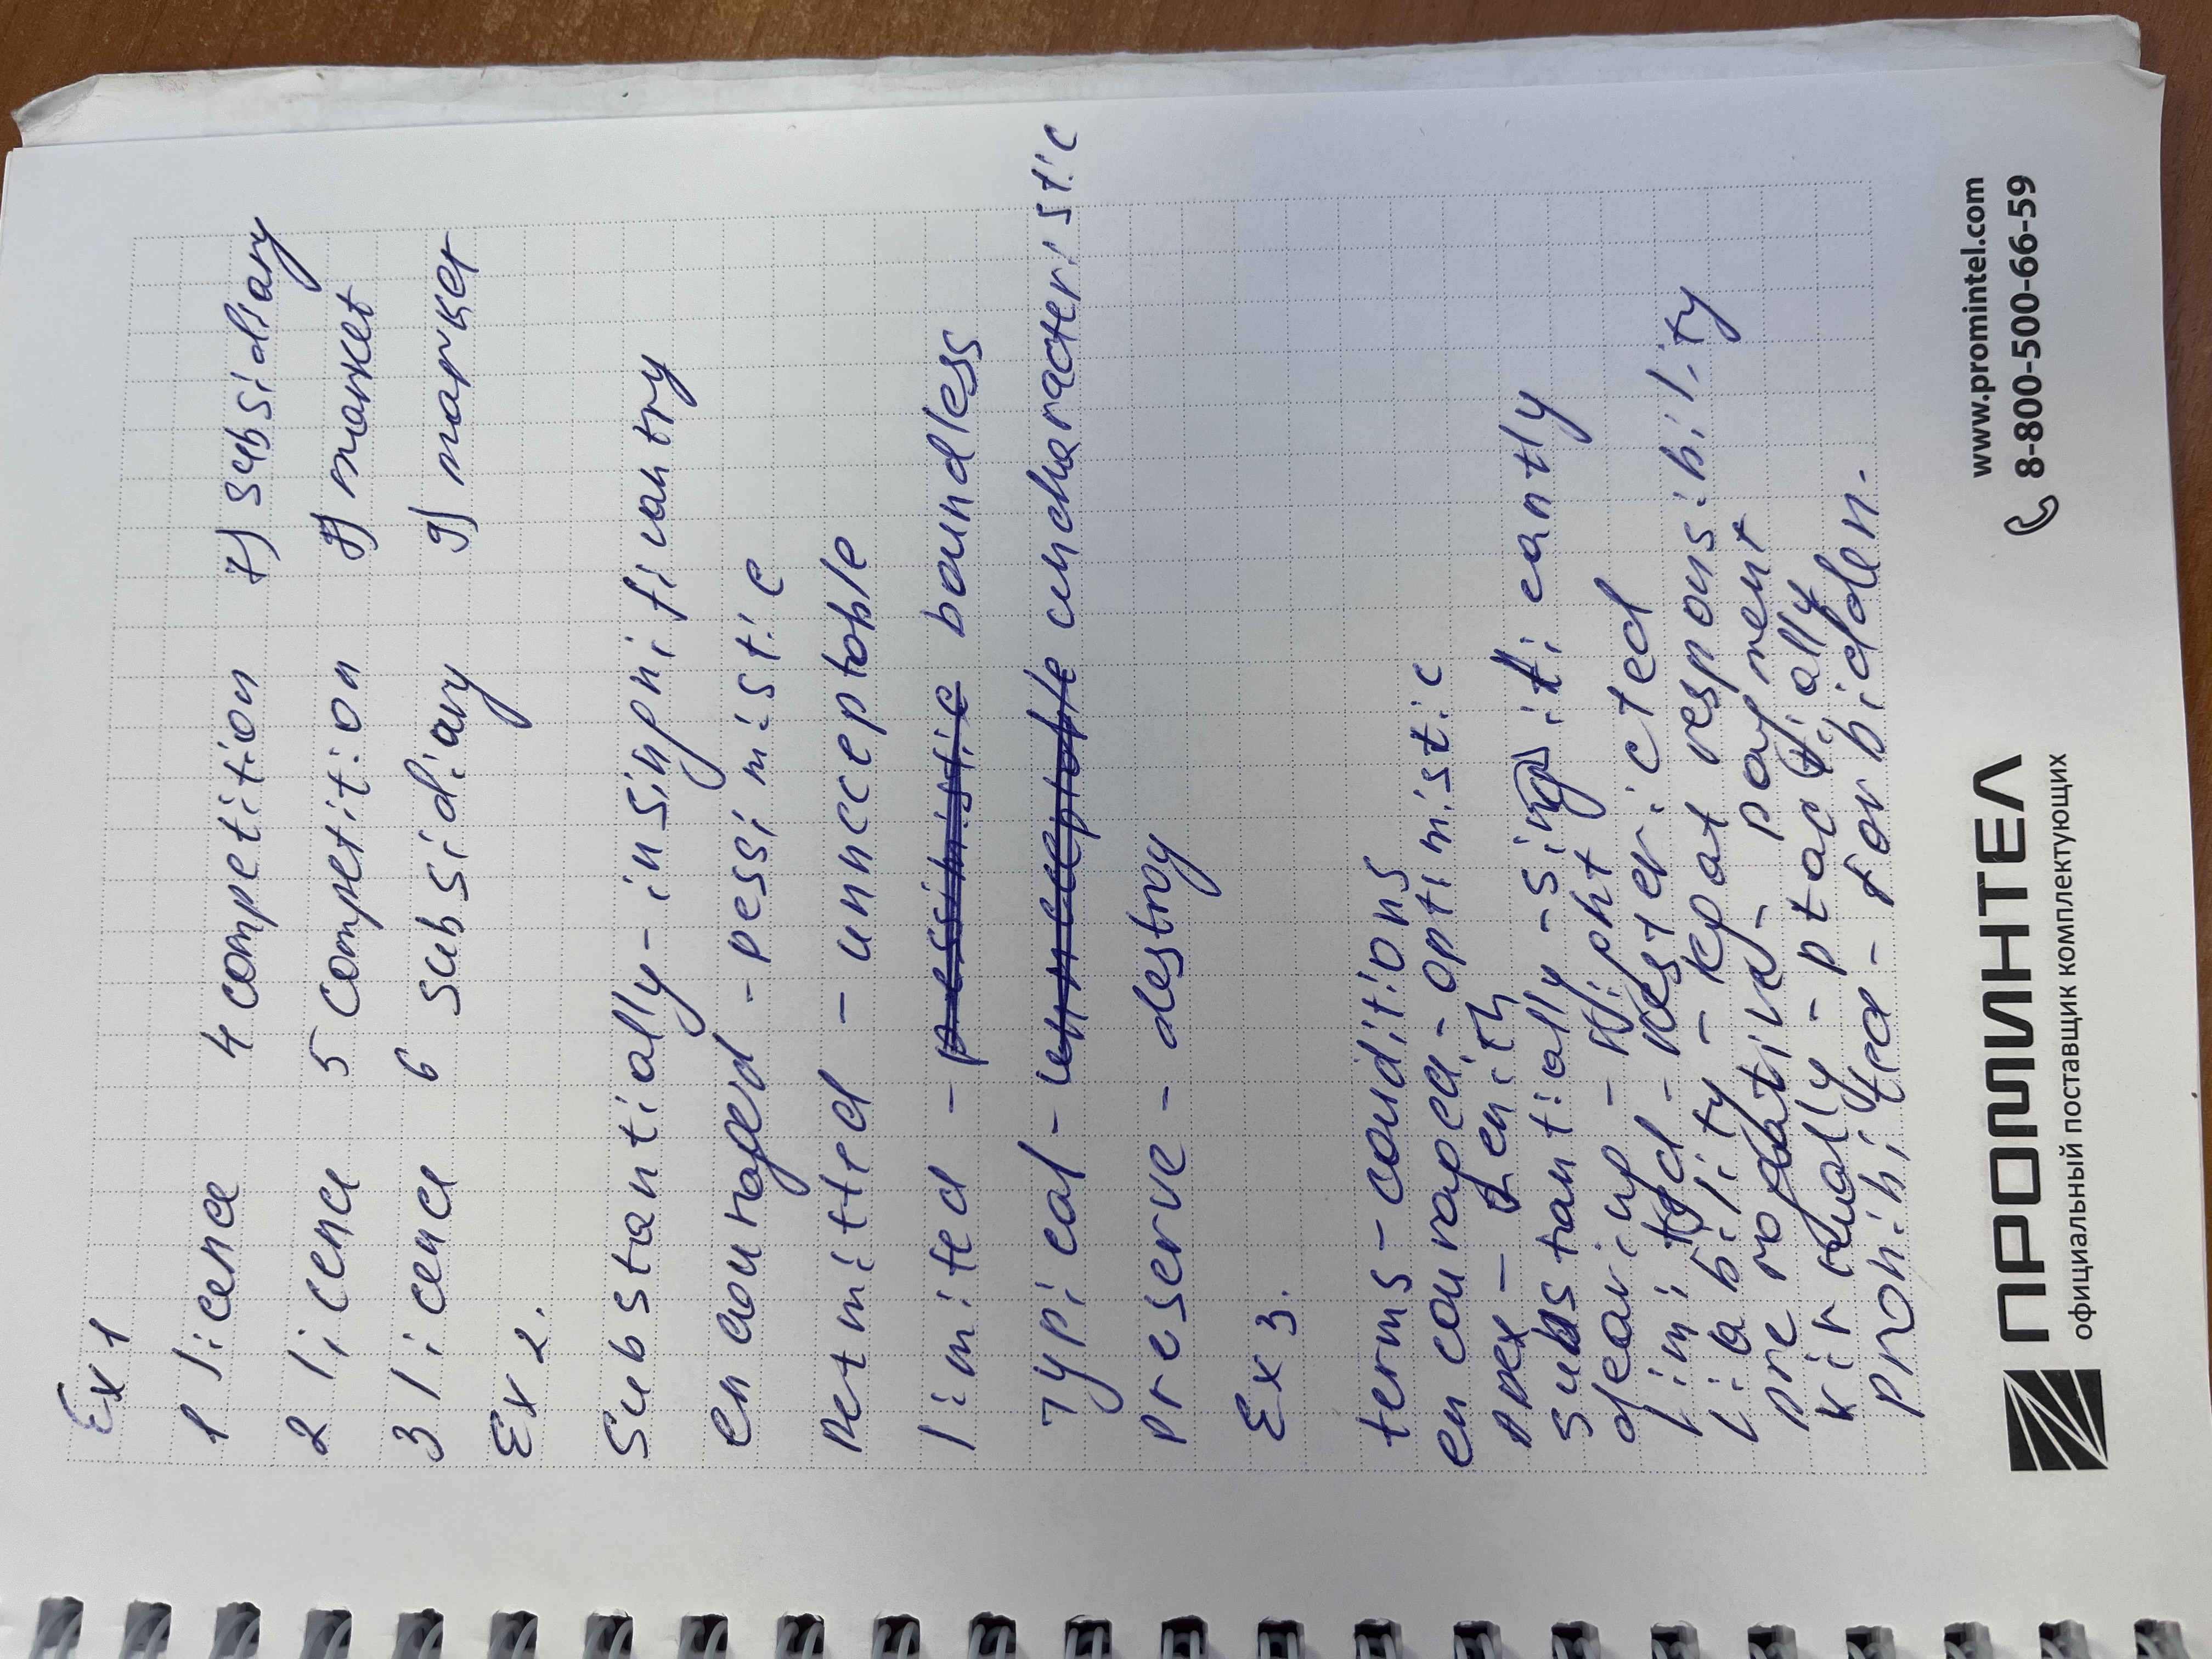 Ex 1
1 licence 4 competition 7) subsidiary
2 licence 5 competition 8) market
3 licence 6 subsidiary 9) market
Ex 2.
Substantially - insingnificantry
encouraged - pessimistic
permitted - unneceptable
limited - pessimistic boundless
Typical - unneceptable uncharacteristic
preserve - destroy
Ex 3.
terms - conditions
encouraged - optimistic
apex - zenith
substantially - singificantly
dearing - right
limited - restericted
liability - legat responsibility
prerogative - payment
virtually - ptactially
prohibited - forbidden.
ПРОМИНТЕЛ
официальный поставщик комплектующих
www.promintel.com
8-800-500-66-59